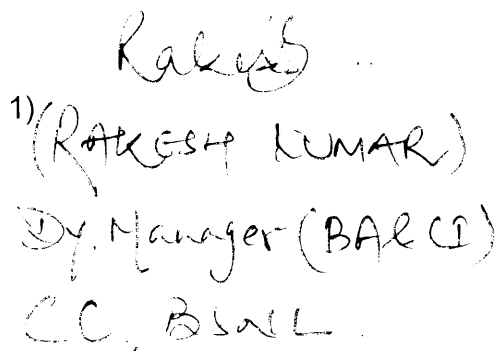 Rakesh
1) (RAKESH KUMAR)
Dy. Manager (BA&CI)
CC, BSNL.